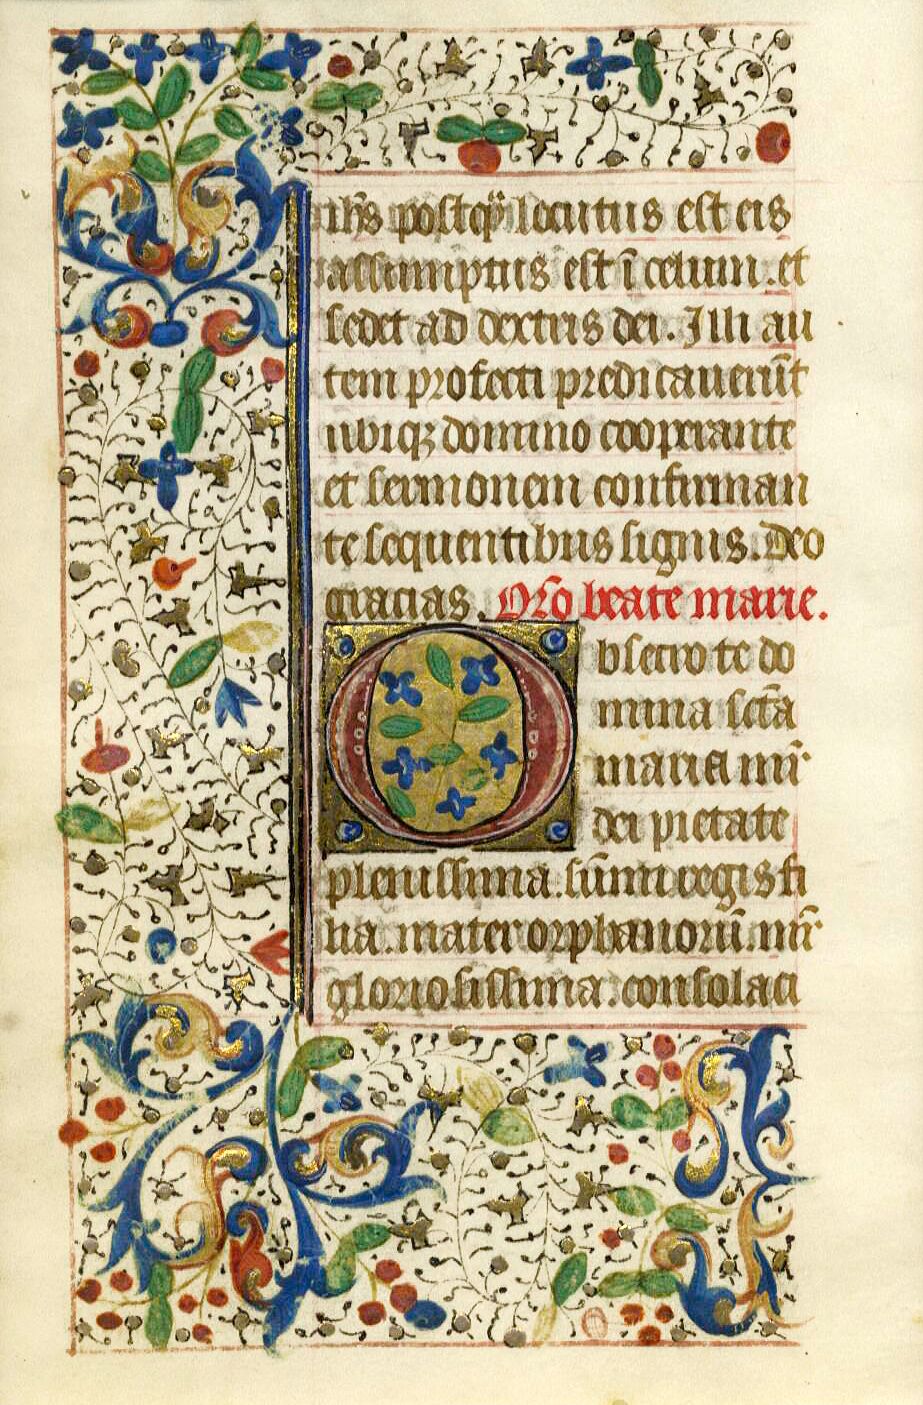 ih̄s postq̄ȝ locutus est eis
assumptus est ī celum. et
sedet ad dextris dei. Illi au
tem profecti predicauerūt
ubiqȝ domino cooperante
et sermonem confirman
te sequentibus signis. Deo
gracias. Or̄o beate marie.
Obsecro te do
mina sc̄ta
maria mr̄
dei pietate
plenissima. sūmi regis fi
lia. mater orphanorū. mr̄
gloriosissima. consolaci